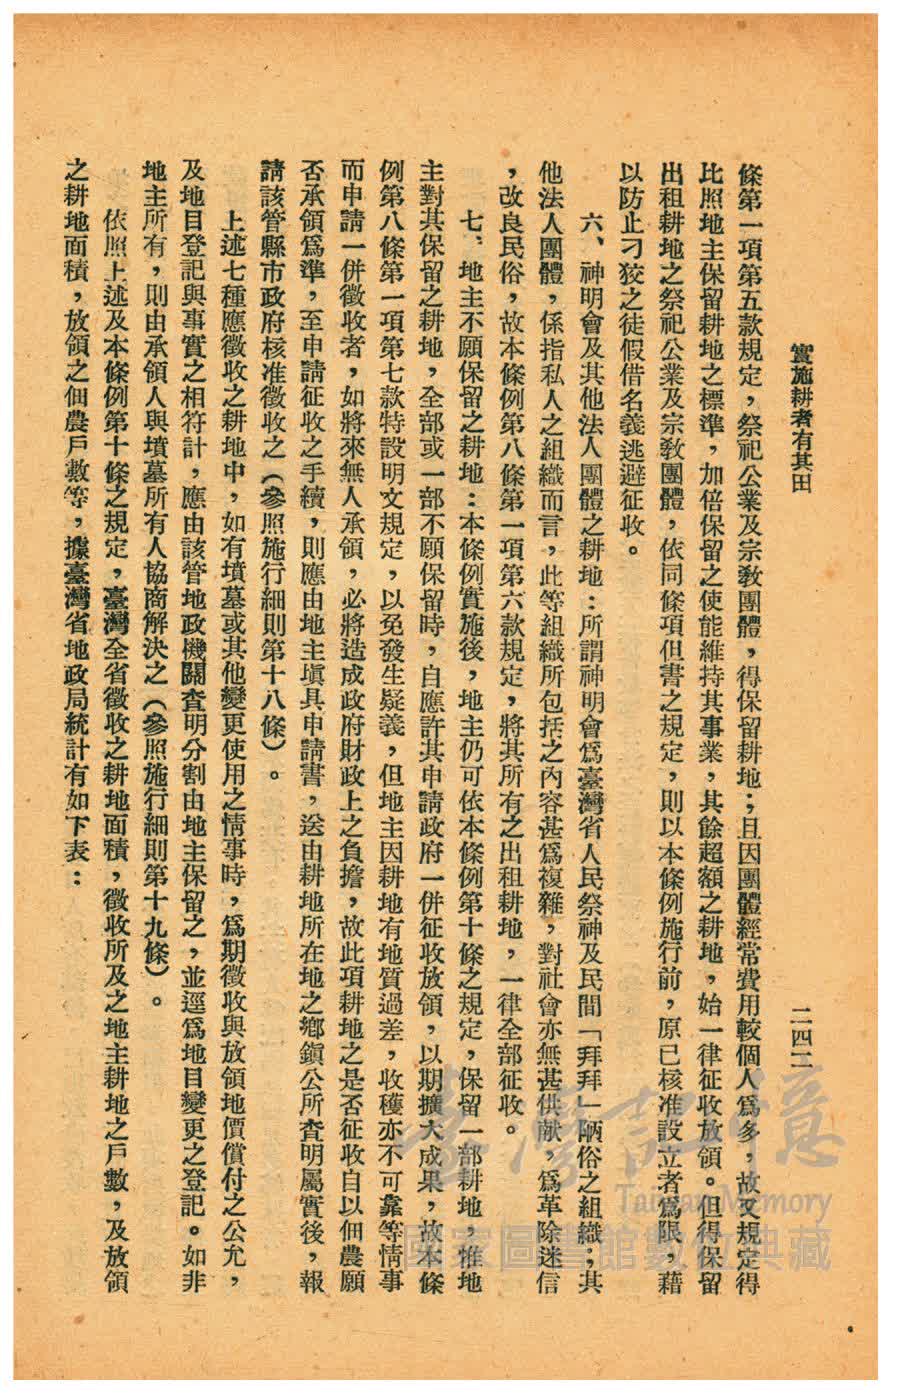 實施耕者有其田
二四二
條第一項第五款規定，祭祀公業及宗教團體，得保留耕地；且因團體經常費用較個人爲多，故又規定得
比照地主保留耕地之標準，加倍保留之使能維持其事業，其餘超額之耕地，始一律征收放領。但得保留
出租耕地之祭祀公業及宗教團體，依同條項但書之規定，則以本條例施行前，原已核准設立者爲限，藉
以防止刁狡之徒假借名義逃避征收。
六、神明會及其他法人團體之耕地：所謂神明會爲臺灣省人民祭神及民間「拜拜」陋俗之組織；其
他法人團體，係指私人之組織而言，此等組織所包括之內容甚爲複雜，對社會亦無甚供献，爲革除迷信
，改良民俗，故本條例第八條第一項第六款規定，將其所有之出租耕地，一律全部征收。
七、地主不願保留之耕地：本條例實施後，地主仍可依本條例第十條之規定，保留一部耕地，惟地
主對其保留之耕地，全部或一部不願保留時，自應許其申請政府一併征收放領，以期擴大成果，故本條
例第八條第一項第七款特設明文規定，以免發生疑義，但地主因耕地有地質過差，收穫亦不可靠等情事
而申請一併徵收者，如將來無人承領，必將造成政府財政上之負擔，故此項耕地之是否征收自以佃農願
否承領爲準，至申請征收之手續，則應由地主塡具申請書，送由耕地所在地之鄉鎮公所査明屬實後，報
請該管縣市政府核准徵收之（參照施行細則第十八條）。
上述七種應徵收之耕地中，如有墳墓或其他變更使用之情事時，爲期徵收與放領地價償付之公允，
及地目登記與事實之相符計，應由該管地政機關査明分割由地主保留之，並逕爲地目變更之登記。如非
地主所有，則由承領人與墳墓所有人協商解決之（參照施行細則第十九條）。
依照上述及本條例第十條之規定，臺灣全省徵收之耕地面積，徵收所及之地主耕地之戶數，及放領
之耕地面積，放領之佃農戶數等，據臺灣省地政局統計有如下表：
臺灣記憶
Taiwan Memory
國家圖書館數位典藏